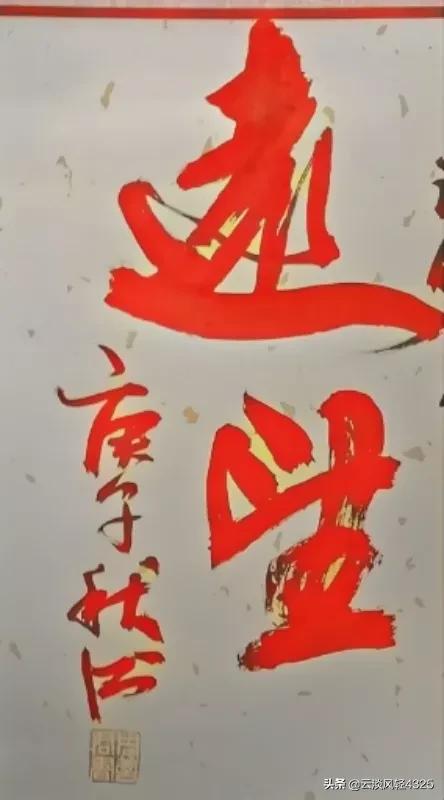 遠望
庚子秋
头条 @云淡风轻4325